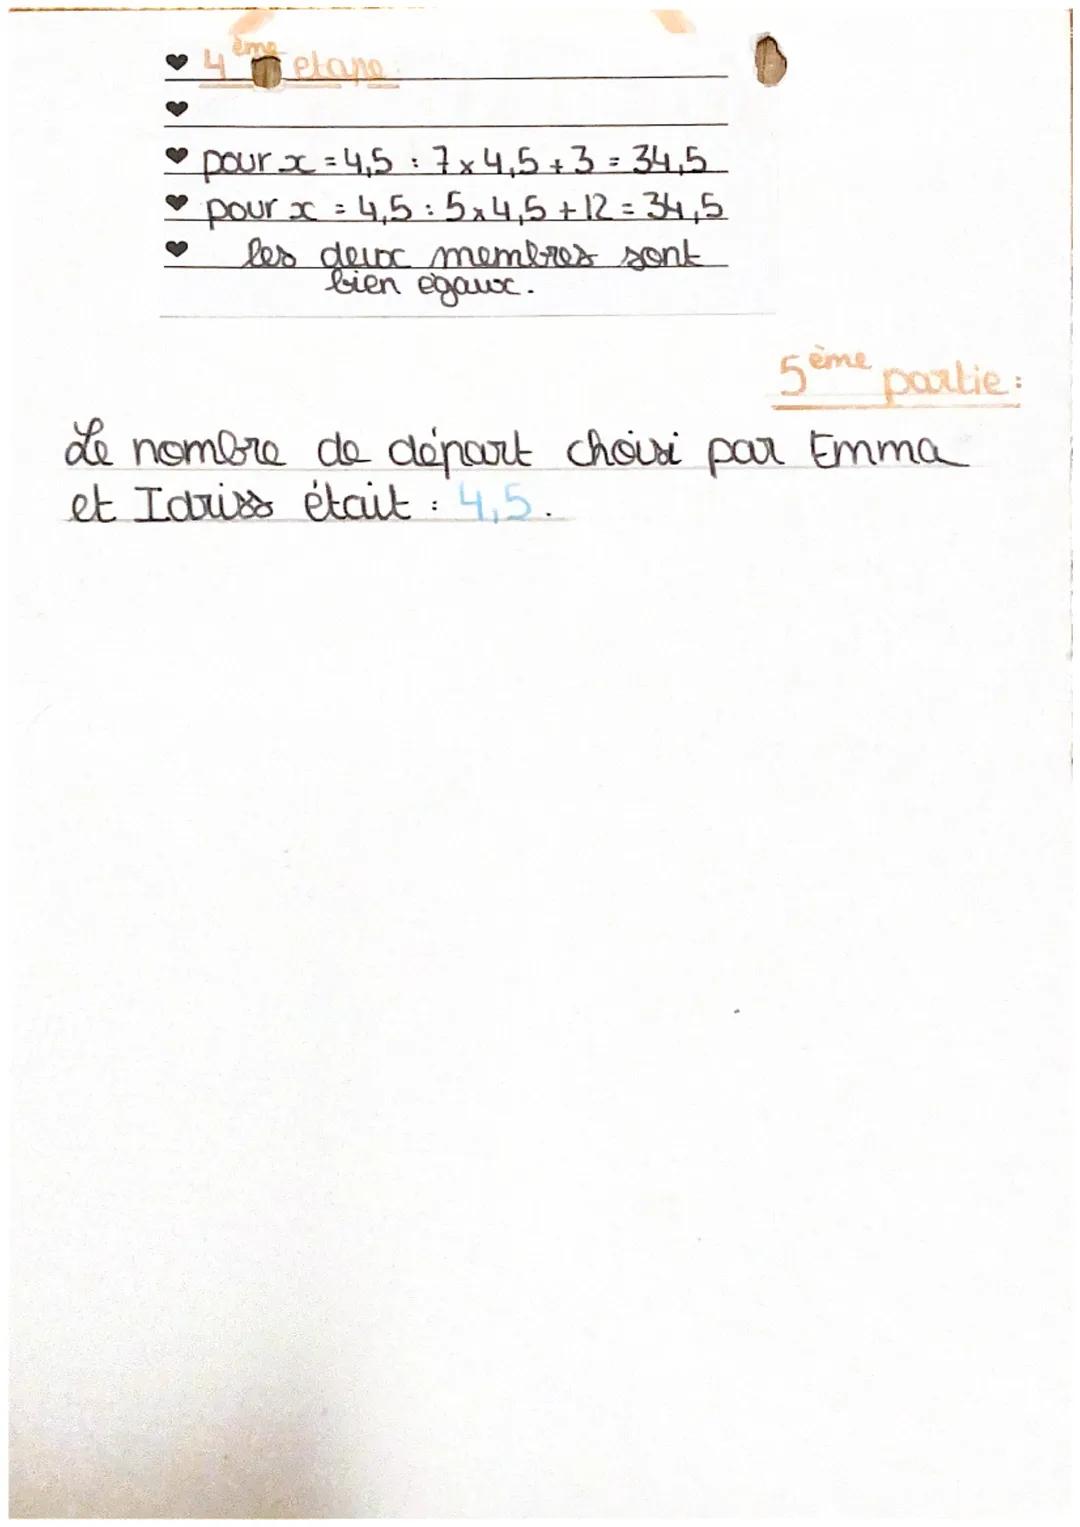 4ème etape
pour x = 4,5 : 7 x 4,5 + 3 = 34,5
pour x = 4,5 : 5 x 4,5 + 12 = 34,5
les deux membres sont
bien égaux.
5ème partie :
Le nombre de départ choisi par Emma
et Idriss était : 4,5.